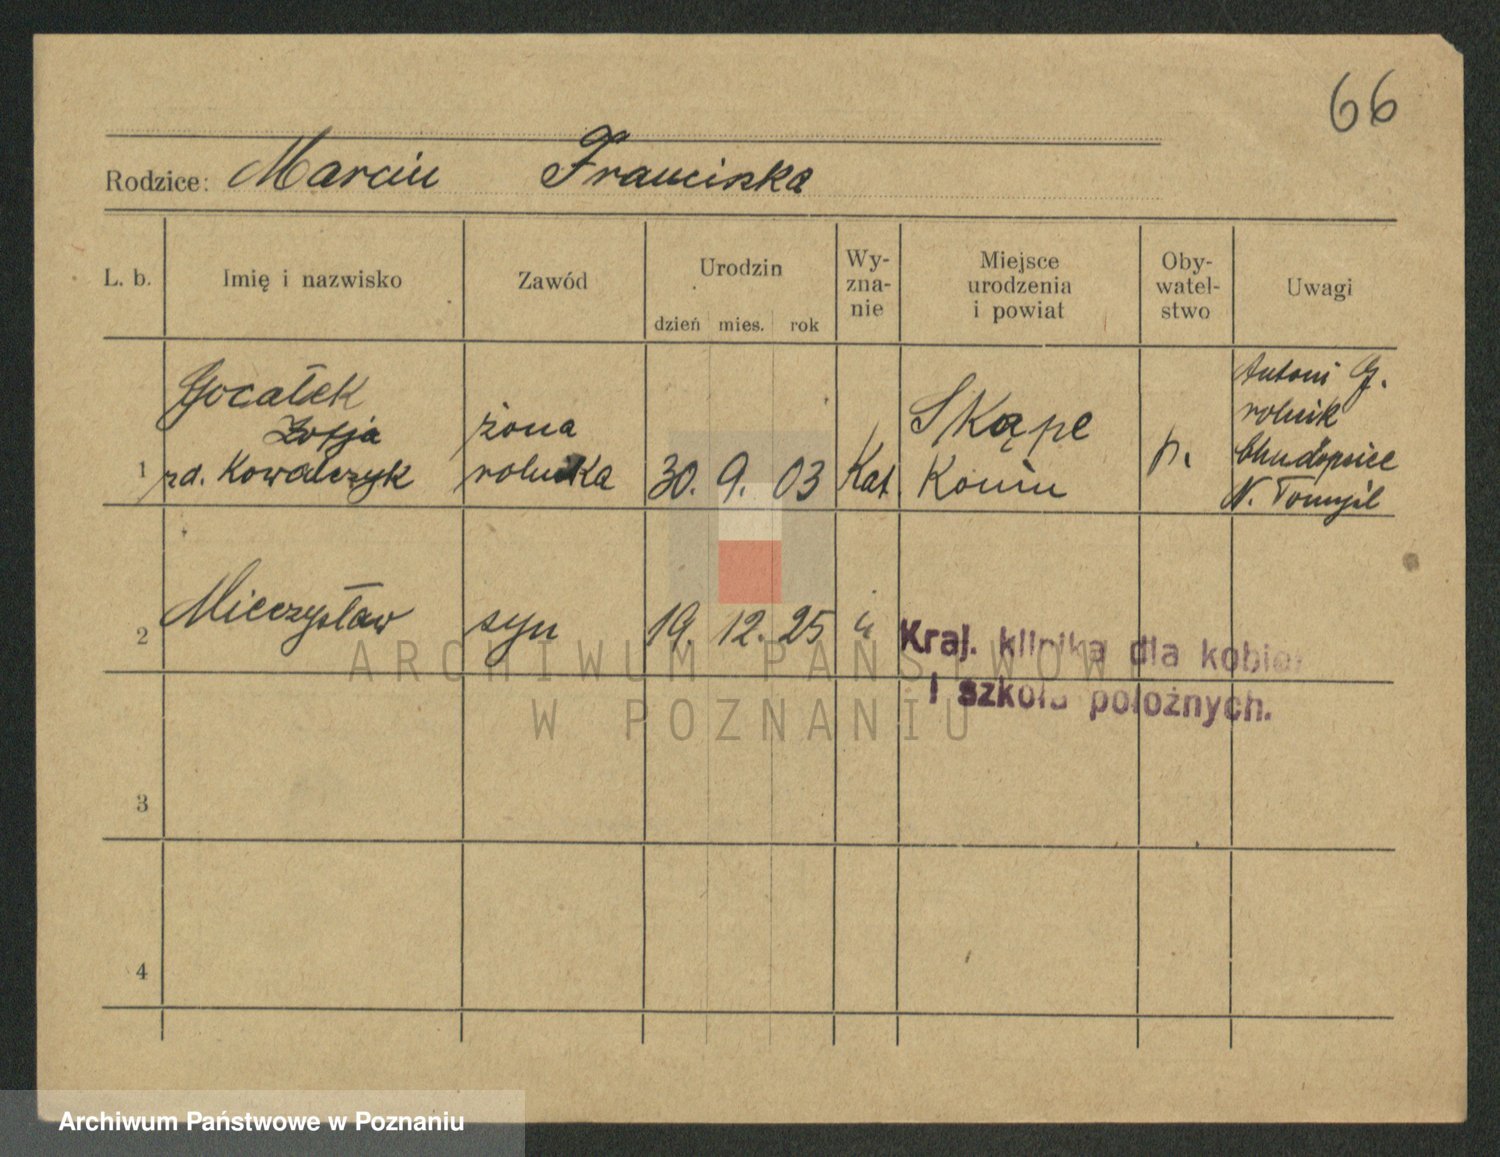 66
Rodzice: Marcin Franciszka
L. b. Imię i nazwisko Zawód Urodzin Wy-zna-nie Miejsce urodzenia i powiat Oby-watel-stwo Uwagi
dzień mies. rok
Gocałek
Zofja żona Skąpe Antoni G.
1 zd. Kowalczyk rolnika 30. 9. 03 Kat. Konin p. rolnik
N. Tomyśl
2 Mieczysław syn 19. 12. 25 "
Kraj. klinika dla kobiet
i szkoła położnych.
3
4
ARCHIWUM PAŃSTWOWE
W POZNANIU
Archiwum Państwowe w Poznaniu